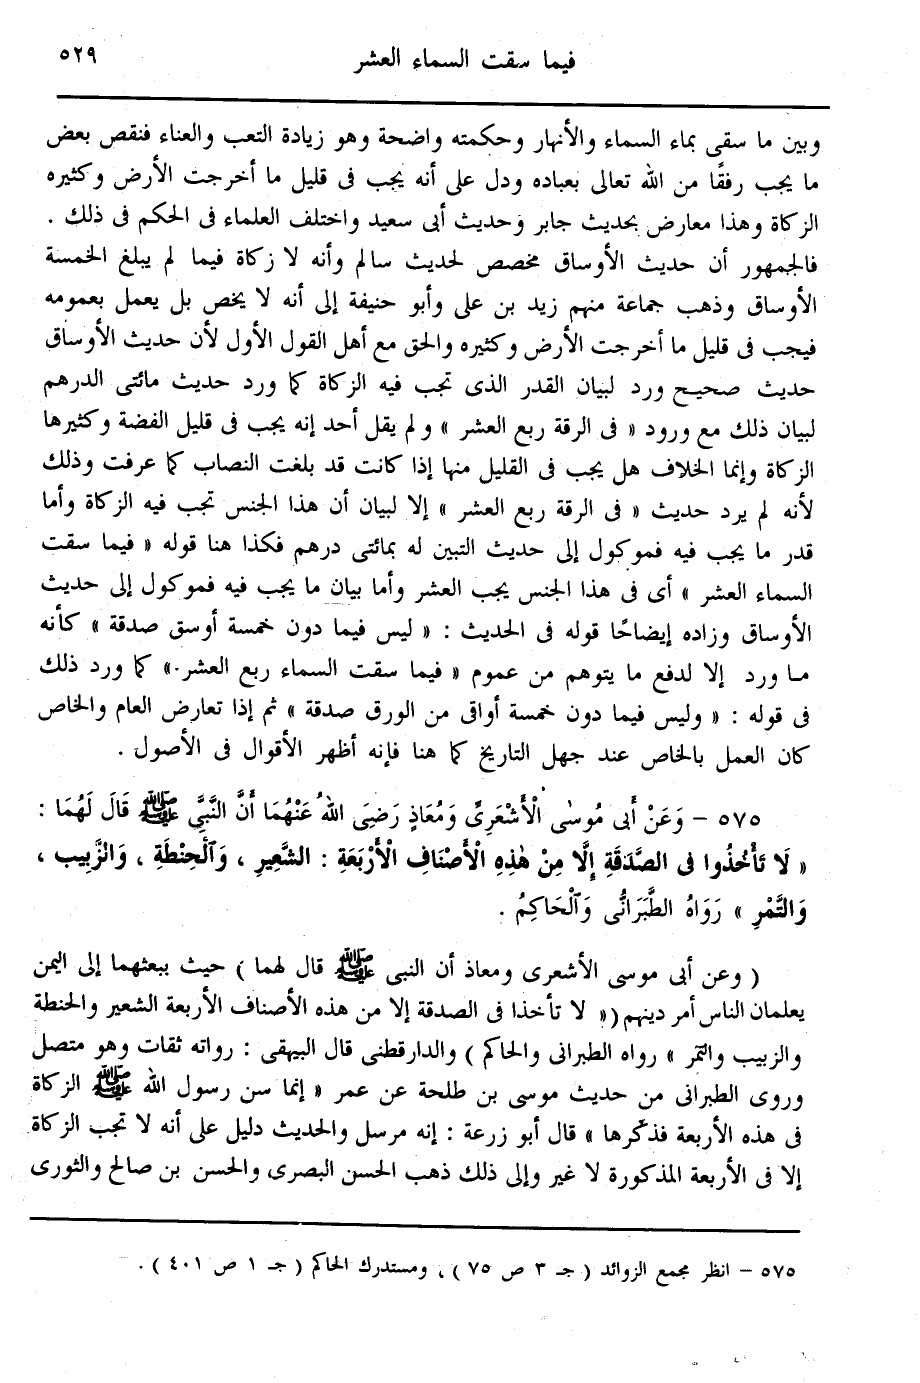 فيما سقت السماء العشر
٥٢٩
وبين ما سقى بماء السماء والأنهار وحكمته واضحة وهو زيادة التعب والعناء فنقص بعض
ما يجب رفقًا من الله تعالى بعباده ودل على أنه يجب فى قليل ما أخرجت الأرض وكثيره
الزكاة وهذا معارض بحديث جابر وحديث أبى سعيد واختلف العلماء فى الحكم فى ذلك .
فالجمهور أن حديث الأوساق مخصص لحديث سالم وأنه لا زكاة فيما لم يبلغ الخمسة
الأوساق وذهب جماعة منهم زيد بن على وأبو حنيفة إلى أنه لا يخص بل يعمل بعمومه
فيجب فى قليل ما أخرجت الأرض وكثيره والحق مع أهل القول الأول لأن حديث الأوساق
حديث صحيح ورد لبيان القدر الذى تجب فيه الزكاة كما ورد حديث مائتى الدرهم
لبيان ذلك مع ورود « فى الرقة ربع العشر » ولم يقل أحد إنه يجب فى قليل الفضة وكثيرها
الزكاة وإنما الخلاف هل يجب فى القليل منها إذا كانت قد بلغت النصاب كما عرفت وذلك
لأنه لم يرد حديث « فى الرقة ربع العشر » إلا لبيان أن هذا الجنس تجب فيه الزكاة وأما
قدر ما يجب فيه فموكول إلى حديث التبين له بمائتى درهم فكذا هنا قوله « فيما سقت
السماء العشر » أى فى هذا الجنس يجب العشر وأما بيان ما يجب فيه فموكول إلى حديث
الأوساق وزاده إيضاحًا قوله فى الحديث : « ليس فيما دون خمسة أوسق صدقة » كأنه
ما ورد إلا لدفع ما يتوهم من عموم « فيما سقت السماء ربع العشر » كما ورد ذلك
فى قوله : « وليس فيما دون خمسة أواقى من الورق صدقة » ثم إذا تعارض العام والخاص
كان العمل بالخاص عند جهل التاريخ كما هنا فإنه أظهر الأقوال فى الأصول .
٥٧٥ – وَعَنْ أَبى مُوسٰى الْأَشْعَرِىِّ وَمُعَاذٍ رَضِىَ اللهُ عَنْهُمَا أَنَّ النَّبِىَّ ﷺ قَالَ لَهُمَا :
« لَا تَأْخُذُوا فى الصَّدَقَةِ إِلَّا مِنْ هٰذِهِ الْأَصْنَافِ الْأَرْبَعَةِ : الشَّعِيرِ ، وَالْحِنْطَةِ ، وَالزَّبِيبِ ،
وَالتَّمْرِ » رَوَاهُ الطَّبَرَانُّى وَالْحَاكِمُ .
( وعن أبى موسى الأشعرى ومعاذ أن النبى ﷺ قال لهما ) حيث يبعثهما إلى اليمن
يعلمان الناس أمر دينهم (« لا تأخذا فى الصدقة إلا من هذه الأصناف الأربعة الشعير والحنطة
والزبيب والتمر » رواه الطبرانى والحاكم ) والدارقطنى قال البيهقى : رواته ثقات وهو متصل
وروى الطبرانى من حديث موسى بن طلحة عن عمر « إنما سن رسول الله ﷺ الزكاة
فى هذه الأربعة فذكرها » قال أبو زرعة : إنه مرسل والحديث دليل على أنه لا تجب الزكاة
إلا فى الأربعة المذكورة لا غير وإلى ذلك ذهب الحسن البصرى والحسن بن صالح والثورى
٥٧٥ – انظر مجمع الزوائد ( جـ ٣ ص ٧٥ ) ، ومستدرك الحاكم ( جـ ١ ص ٤٠١ ) .